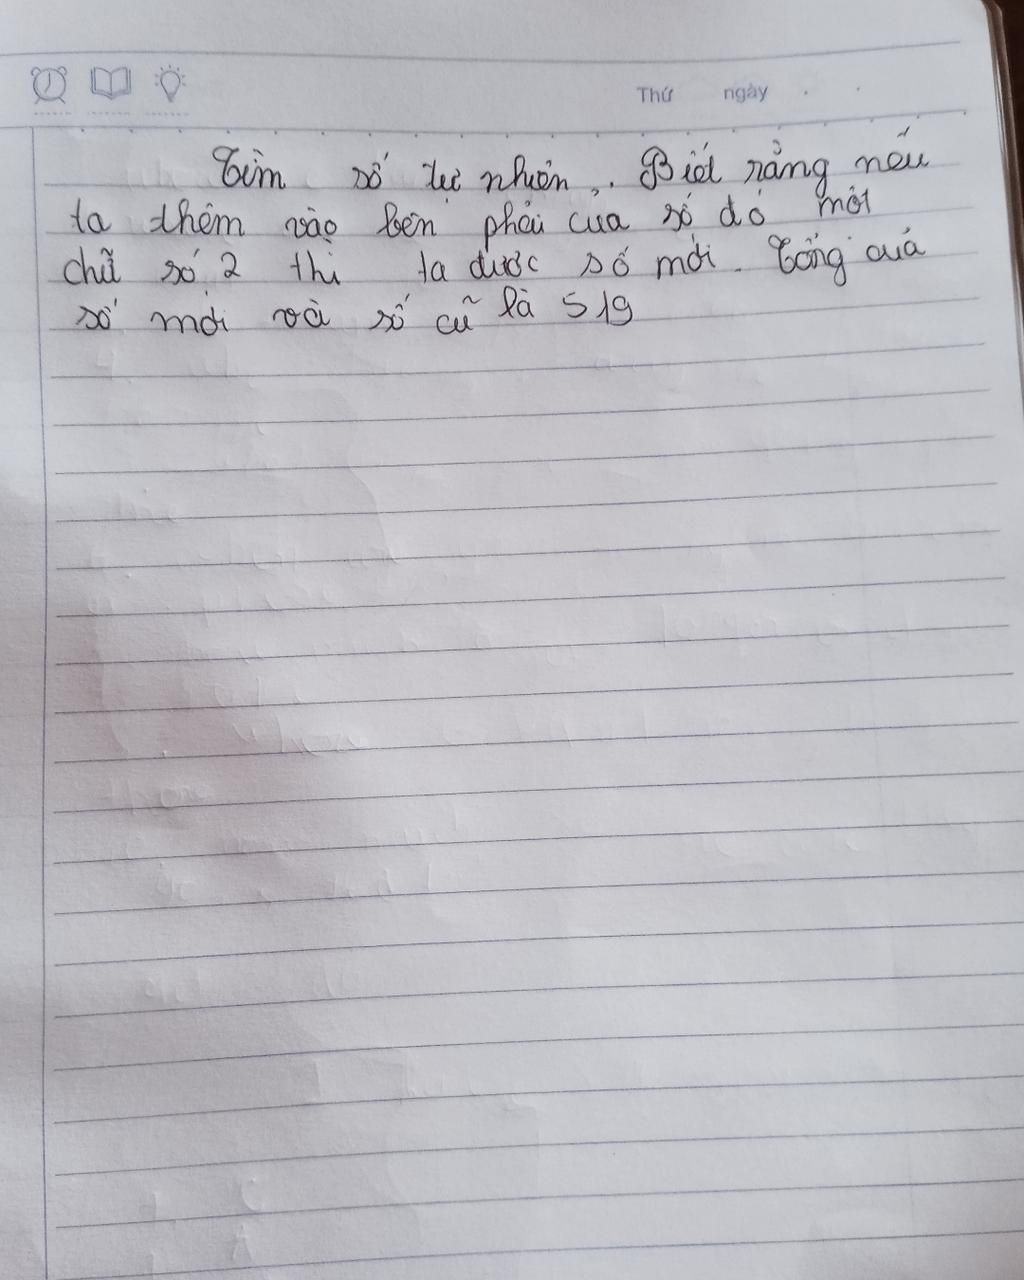 Thứ ngày
Tìm số tự nhiên. Biết rằng nếu
ta thêm vào bên phải của số đó một
chữ số 2 thì ta được số mới. Tổng quả
số mới và số cũ là 519